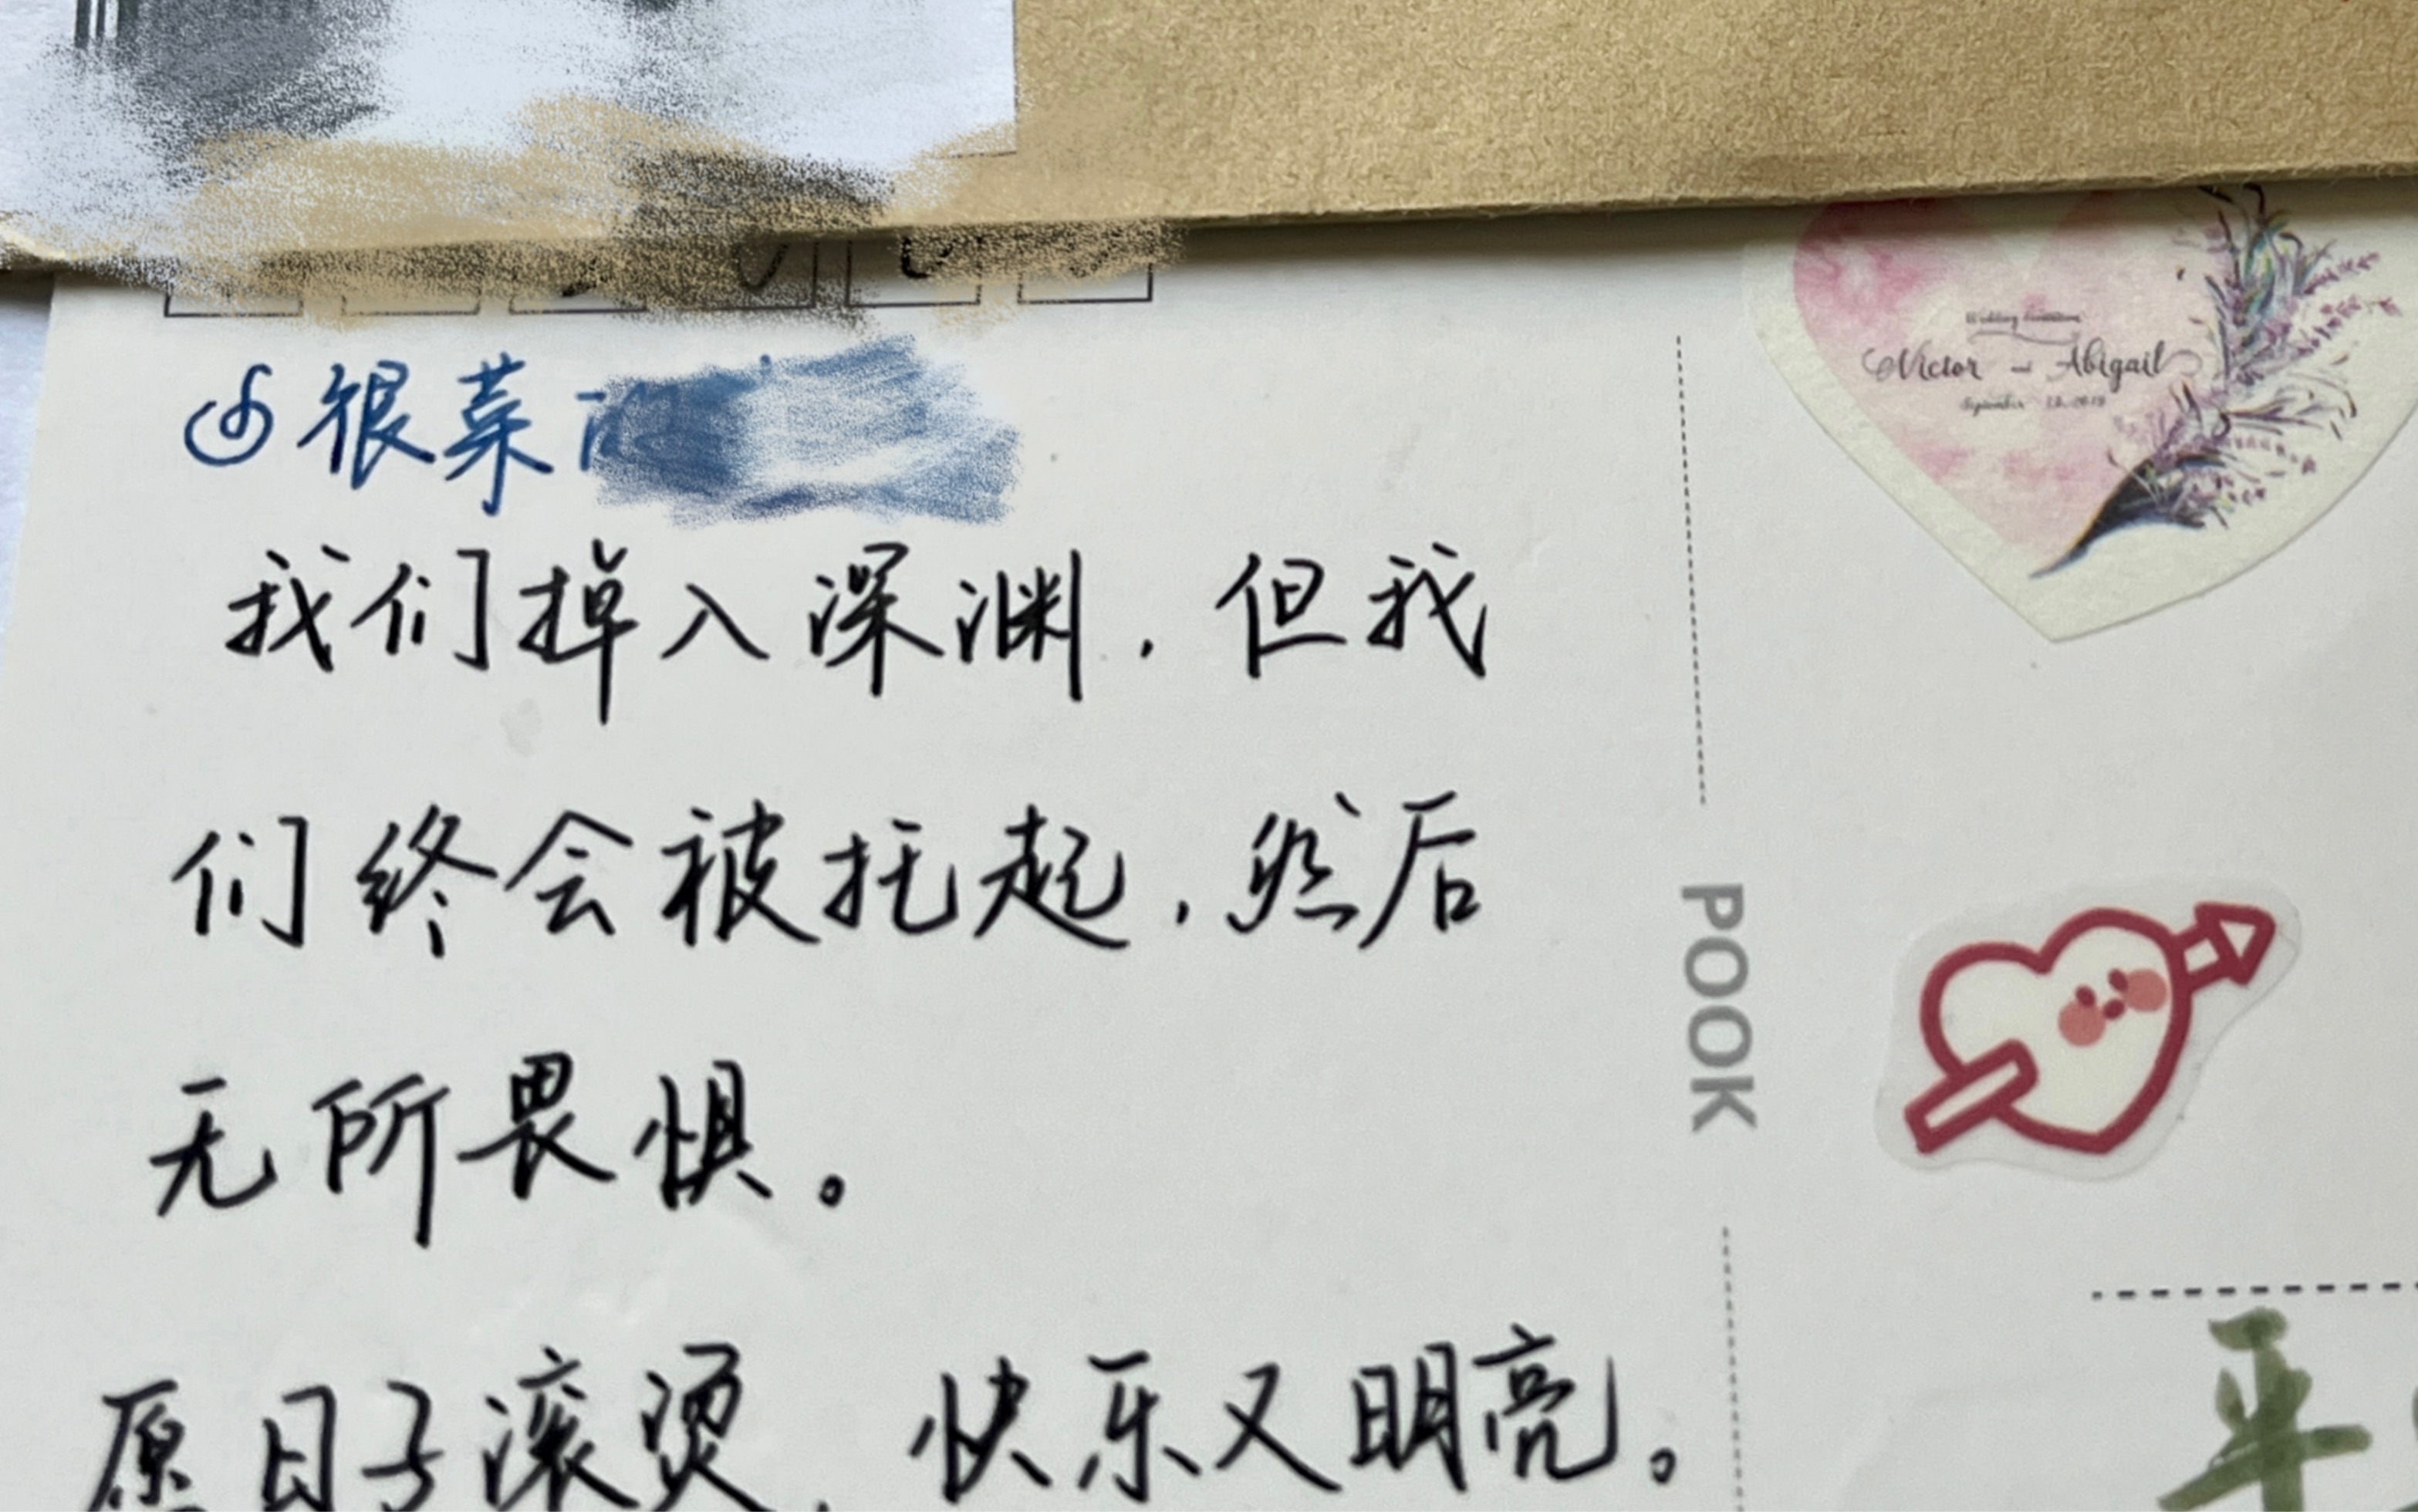 很菜
我们掉入深渊，但我
们终会被托起，然后
无所畏惧。
愿日子滚烫，快乐又明亮。
Wedding Invitation
Victor and Abigail
September 12.2019
POOK
平